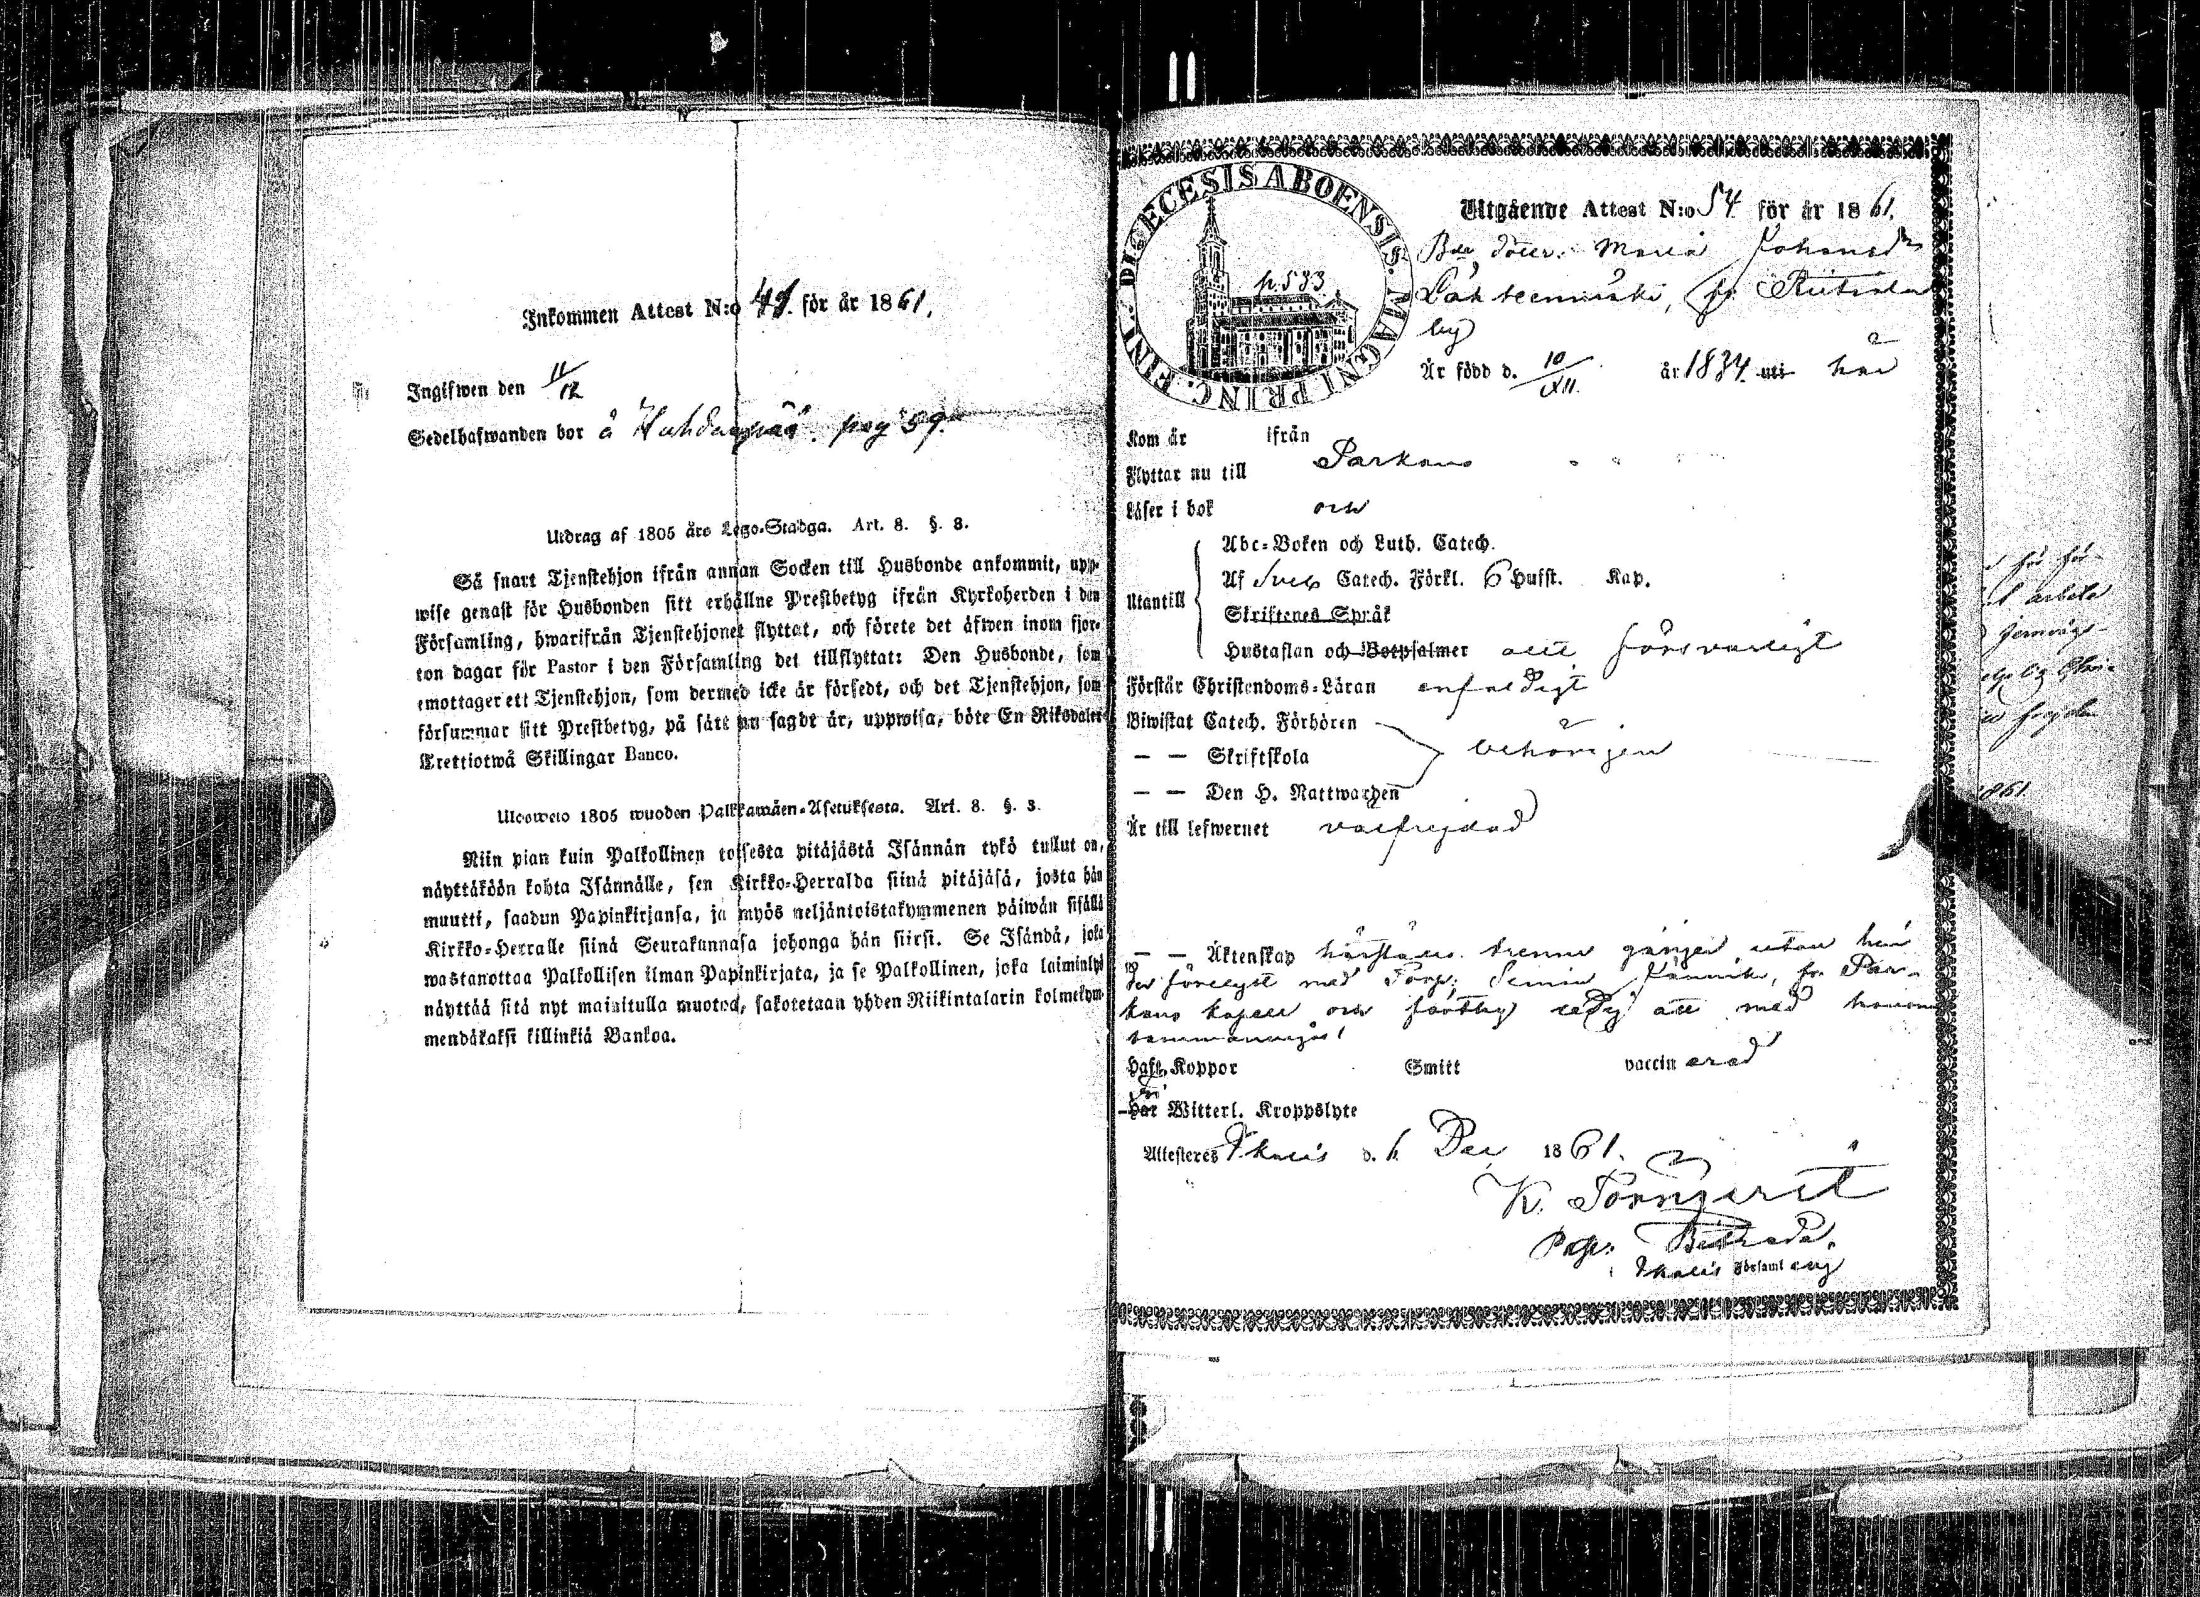 Inkommen Attest N:o 48. för år 1861.
Ingifwen den 11/12
Sedelhafwanden bor å pag 59.
Utdrag af 1805 års Lego-Stadga. Art. 8. §. 3.
Så snart Tjenstehjon ifrån annan Socken till Husbonde ankommit, upp-
wise genast för Husbonden sitt erhållne Prestbetyg ifrån Kyrkoherden i den
Församling, hwarifrån Tjenstehjonet flyttat, och förete det äfwen inom fjor-
ton dagar för Pastor i den Församling det tillflyttat: Den Husbonde, som
emottager ett Tjenstehjon, som dermed icke är försedt, och det Tjenstehjon, som
försummar sitt Prestbetyg, på sätt nu sagdt är, uppwisa, böte En Riksdaler
Trettiotwå Skillingar Banco.
Ulosweto 1805 wuoden Palkkawäen-Asetuksesta. Art. 8. §. 3.
Niin pian kuin Palkollinen toisesta pitäjästä Isännän tykö tullut on,
näyttäköön kohta Isännälle, sen Kirkko-Herralda siinä pitäjäsä, josta hän
muutti, saadun Papinkirjansa, ja myös neljäntoistakymmenen päiwän sisällä
Kirkko-Herralle siinä Seurakunnasa johonga hän siirsi. Se Isändä, joka
wastanottaa Palkollisen ilman Papinkirjata, ja se Palkollinen, joka laiminlyö
näyttää sitä nyt mainitulla muotoa, sakotetaan yhden Riikintalarin kolmekym-
mendäkaksi killinkiä Bankoa.
DIOECESIS ABOENSIS. MAGNI PRINC. FINL.
p. 583
Utgående Attest N:o 54 för år 1861.
dotter. Maria Johansdr
fr
by
Är född d. 10/XII. år 1834. uti här
Kom år ifrån
Flyttar nu till Parkano
Läser i bok och
Utantill
Abc-Boken och Luth. Catech.
Af Sveb Catech. Förkl. 6 Hufst. Kap.
Skriftenes Språk
Hustaflan och Botpsalmer allt försvarligt
Förstår Christendoms-Läran enfaldigt
Biwistat Catech. Förhören
— — Skriftskola behörigen
— — Den H. Nattwarden
Är till lefwernet välfrejdad
— — Äktenskap härstädes trenne gånger utan hin
der förelyst med Torp: Jannika, fr Par-
kano kapell och förthy ledig att med honom
Haft Koppor Smitt vaccinerad
Har Witterl. Kroppslyte
Attesteres Ikalis d. 6 Dec 1861.
K. Törnqvist
Past: Biträde.
Ikalis Församling
arbete
1861